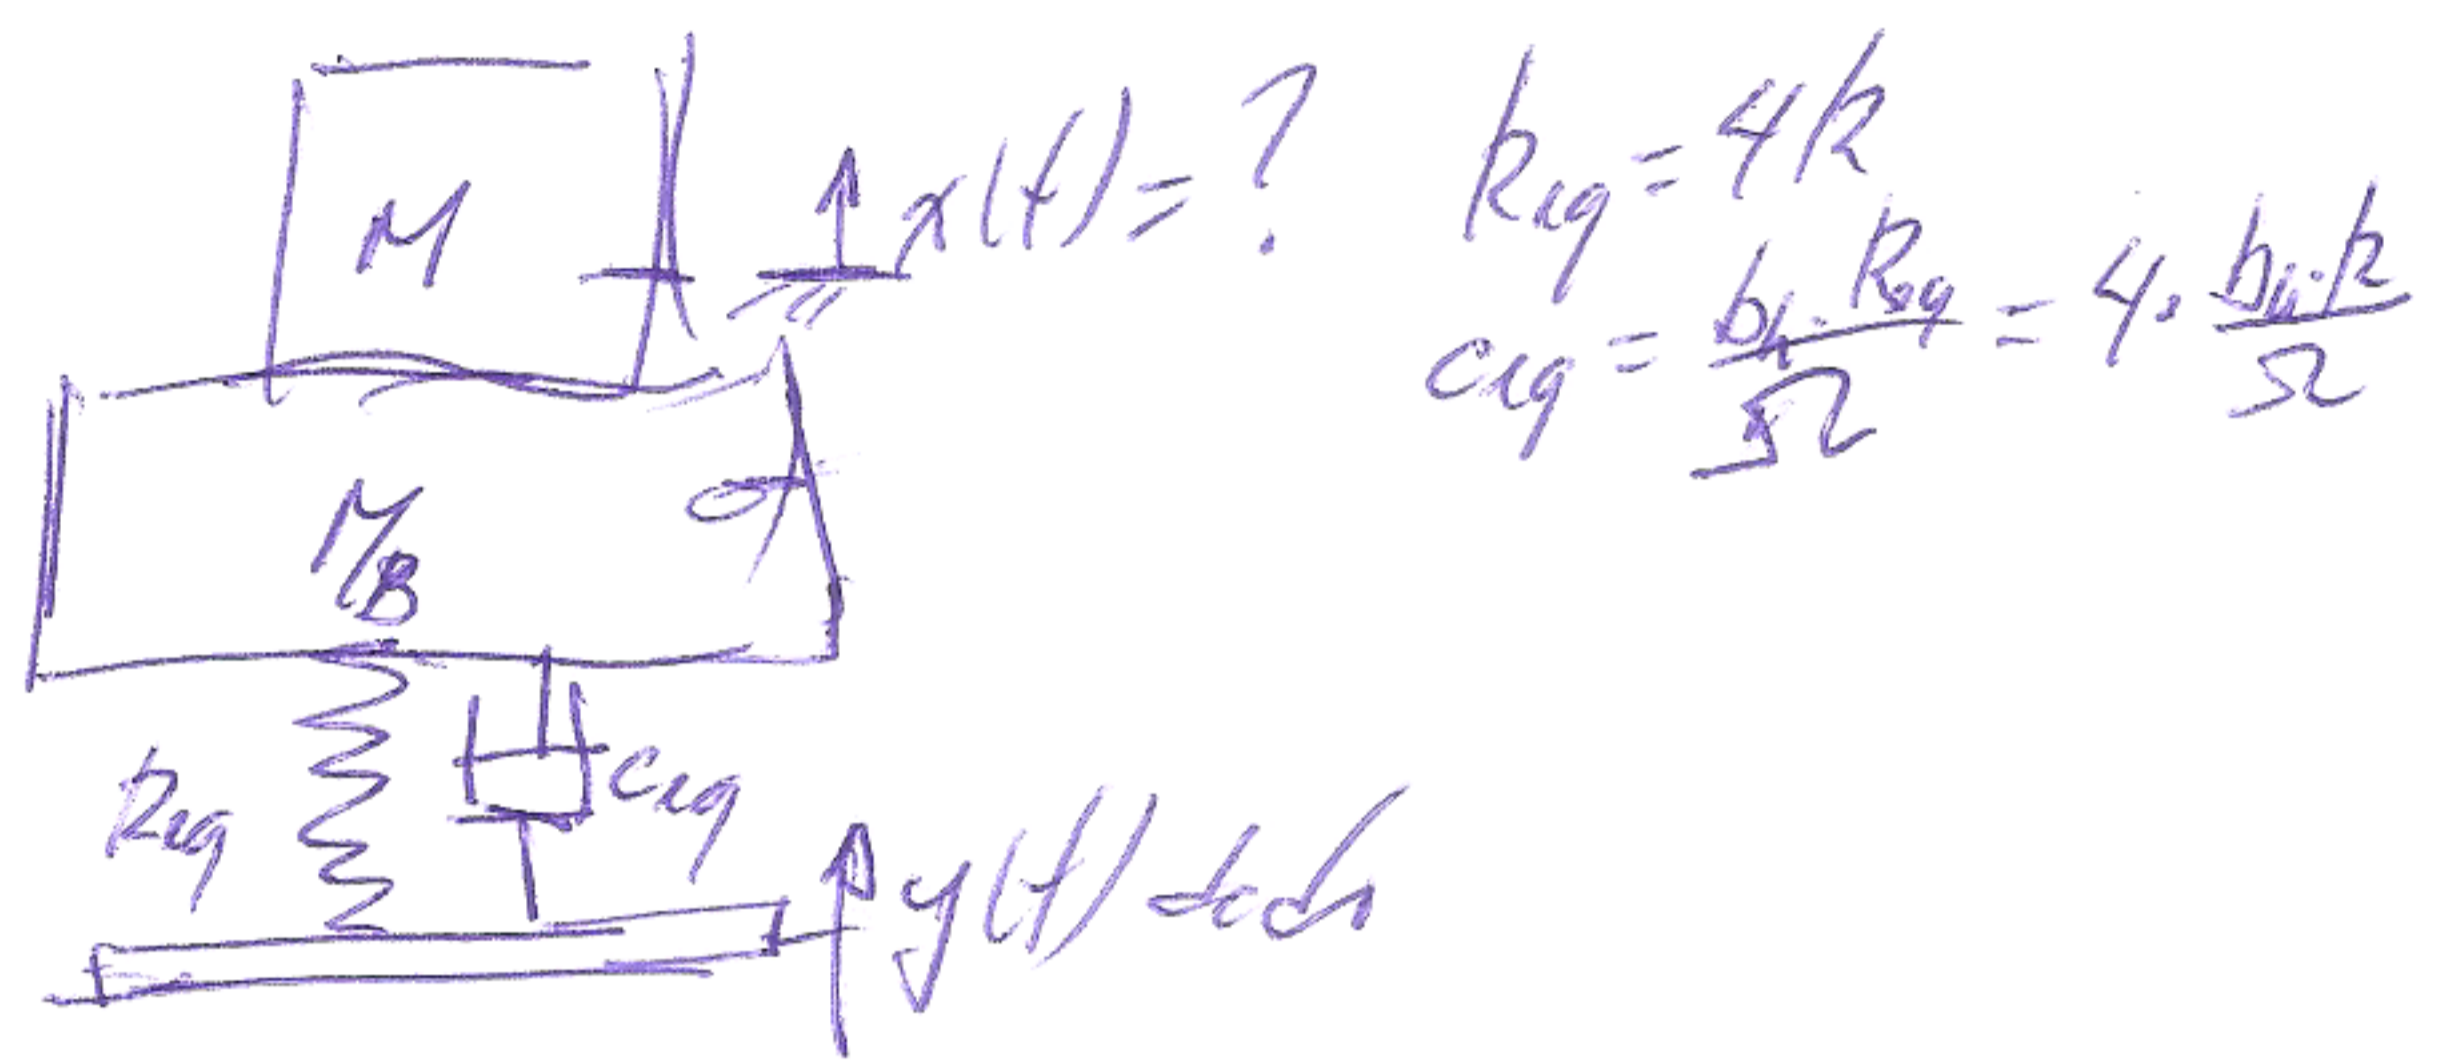 M
x(t) = ?
keq = 4k
ceq = bh·keq/Ω = 4·bh·k/Ω
MB
keq
ceq
y(t)